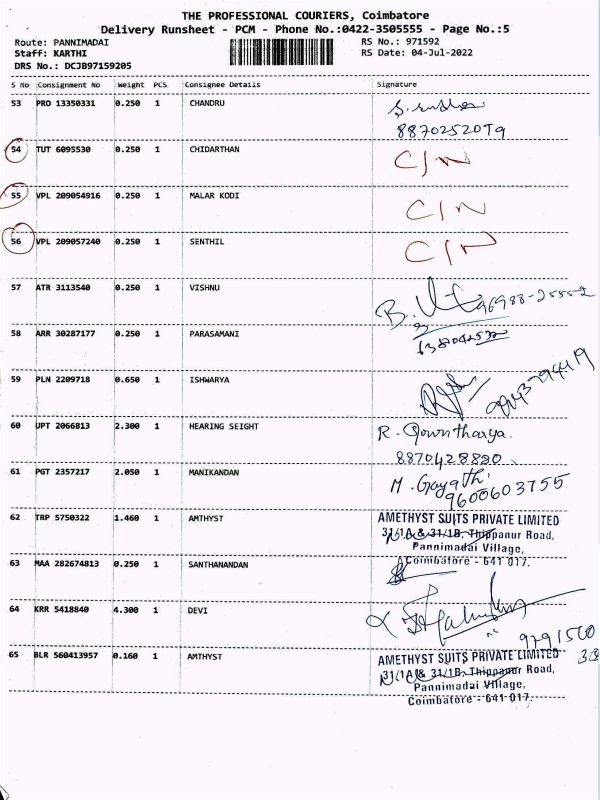 THE PROFESSIONAL COURIERS, Coimbatore
Delivery Runsheet - PCM - Phone No.:0422-3505555 - Page No.:5
Route: PANNIMADAI RS No.: 971592
Staff: KARTHI RS Date: 04-Jul-2022
DRS No.: DCJB97159205
S No Consignment No Weight PCS Consignee Details Signature
53 PRO 13350331 0.250 1 CHANDRU
54 TUT 6095530 0.250 1 CHIDARTHAN C/N
55 VPL 209054916 0.250 1 MALAR KODI C/N
56 VPL 209057240 0.250 1 SENTHIL C/N
57 ATR 3113540 0.250 1 VISHNU
58 ARR 30287177 0.250 1 PARASAMANI
59 PLN 2209718 0.650 1 ISHWARYA
60 UPT 2066813 2.300 1 HEARING SEIGHT R. Gowntharya.
8870428820
61 PGT 2357217 2.050 1 MANIKANDAN M. Gayathi
9600603755
62 TRP 5750322 1.460 1 AMTHYST AMETHYST SUITS PRIVATE LIMITED
31/1A & 31/1B, Thippanur Road,
Pannimadai Village,
Coimbatore - 641 017.
63 MAA 282674813 0.250 1 SANTHANANDAN
64 KRR 5418840 4.300 1 DEVI
65 BLR 560413957 0.160 1 AMTHYST AMETHYST SUITS PRIVATE LIMITED
31/1A & 31/1B, Thippanur Road,
Pannimadai Village,
Coimbatore - 641 017.